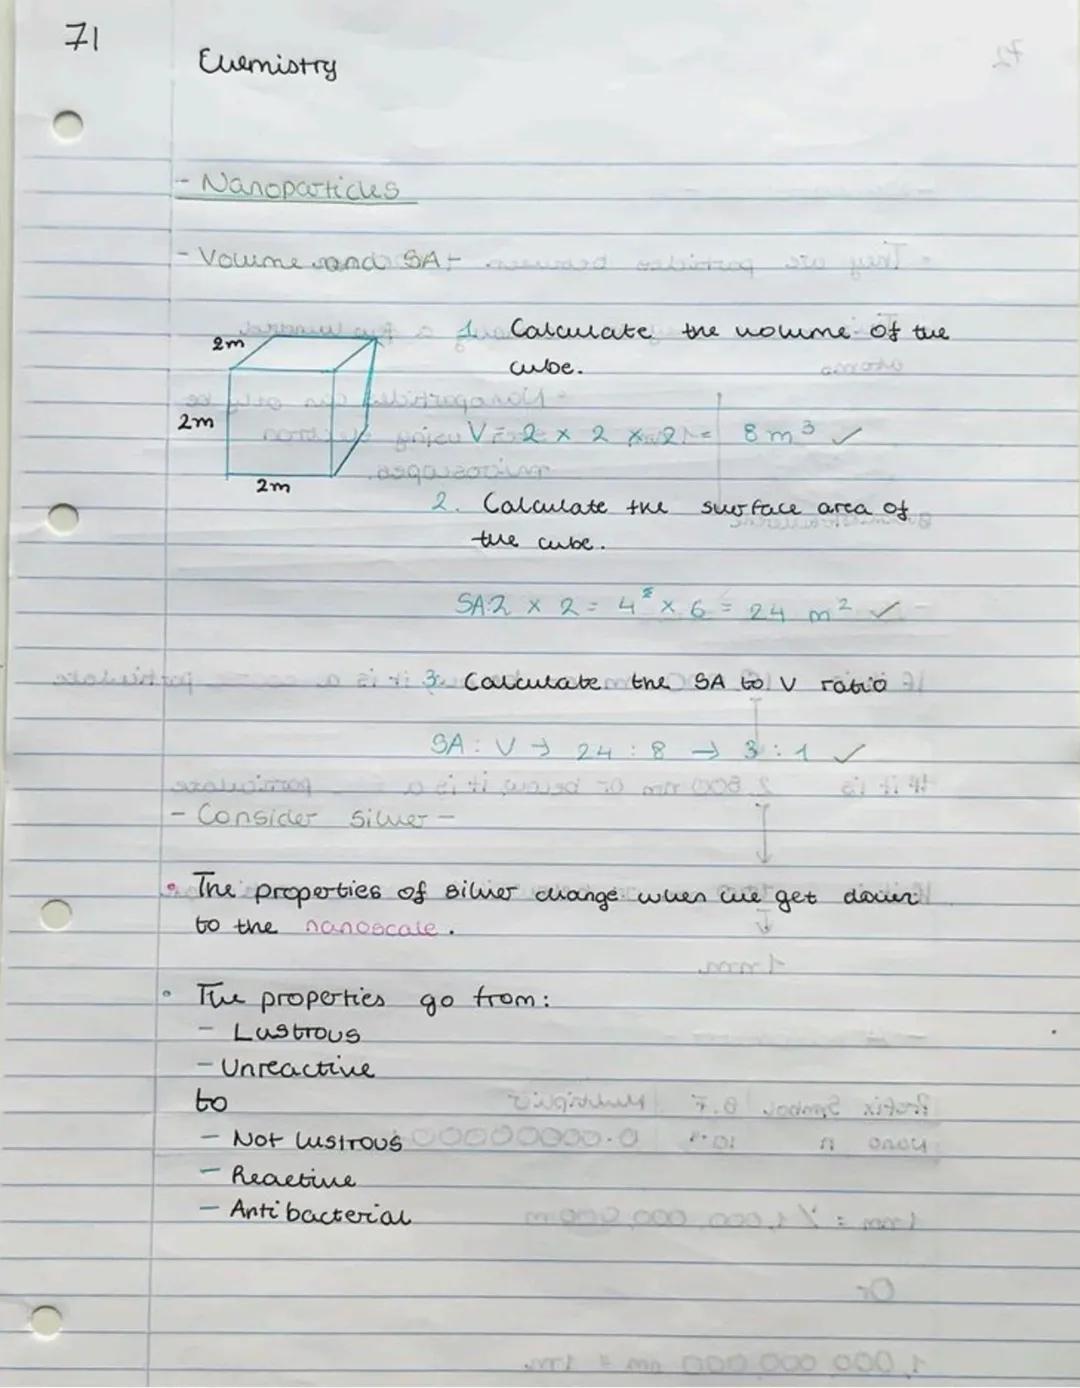 71
Chemistry
- Nanoparticles
- Volume and SA -
2m
2m
2m
1. Calculate the volume of the
cube.
V = 2 x 2 x 2 = 8 m³ ✓
2. Calculate the surface area of
the cube.
SA: 2 x 2 = 4² x 6 = 24 m² ✓
3. Calculate the SA to V ratio
SA : V → 24 : 8 → 3 : 1 ✓
- Consider Silver -
• The properties of silver change when we get down
to the nanoscale.
• The properties go from:
- Lustrous
- Unreactive
to
- Not lustrous
- Reactive
- Antibacterial